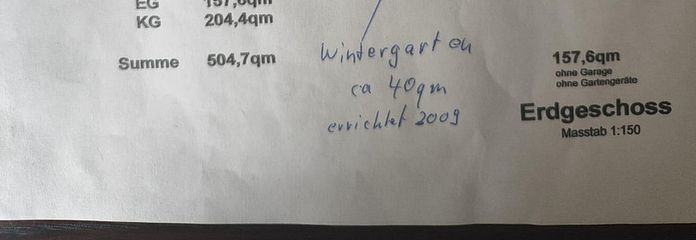 EG 157,6qm
KG 204,4qm
Summe 504,7qm
Wintergarten
ca 40qm
errichtet 2009
157,6qm
ohne Garage
ohne Gartengeräte
Erdgeschoss
Masstab 1:150